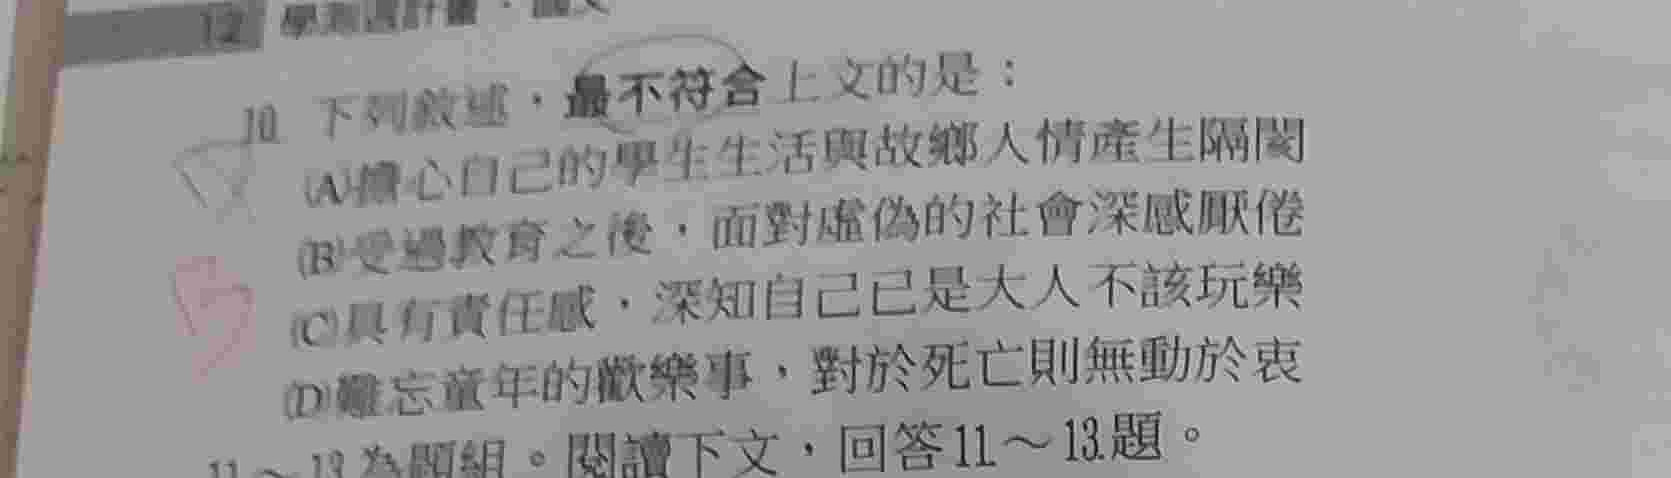 12 學測週計畫．國文
10. 下列敘述，最不符合上文的是：
(A)擔心自己的學生生活與故鄉人情產生隔閡
(B)受過教育之後，面對虛偽的社會深感厭倦
(C)具有責任感，深知自己已是大人不該玩樂
(D)難忘童年的歡樂事，對於死亡則無動於衷
11～13.為題組。閱讀下文，回答11～13.題。